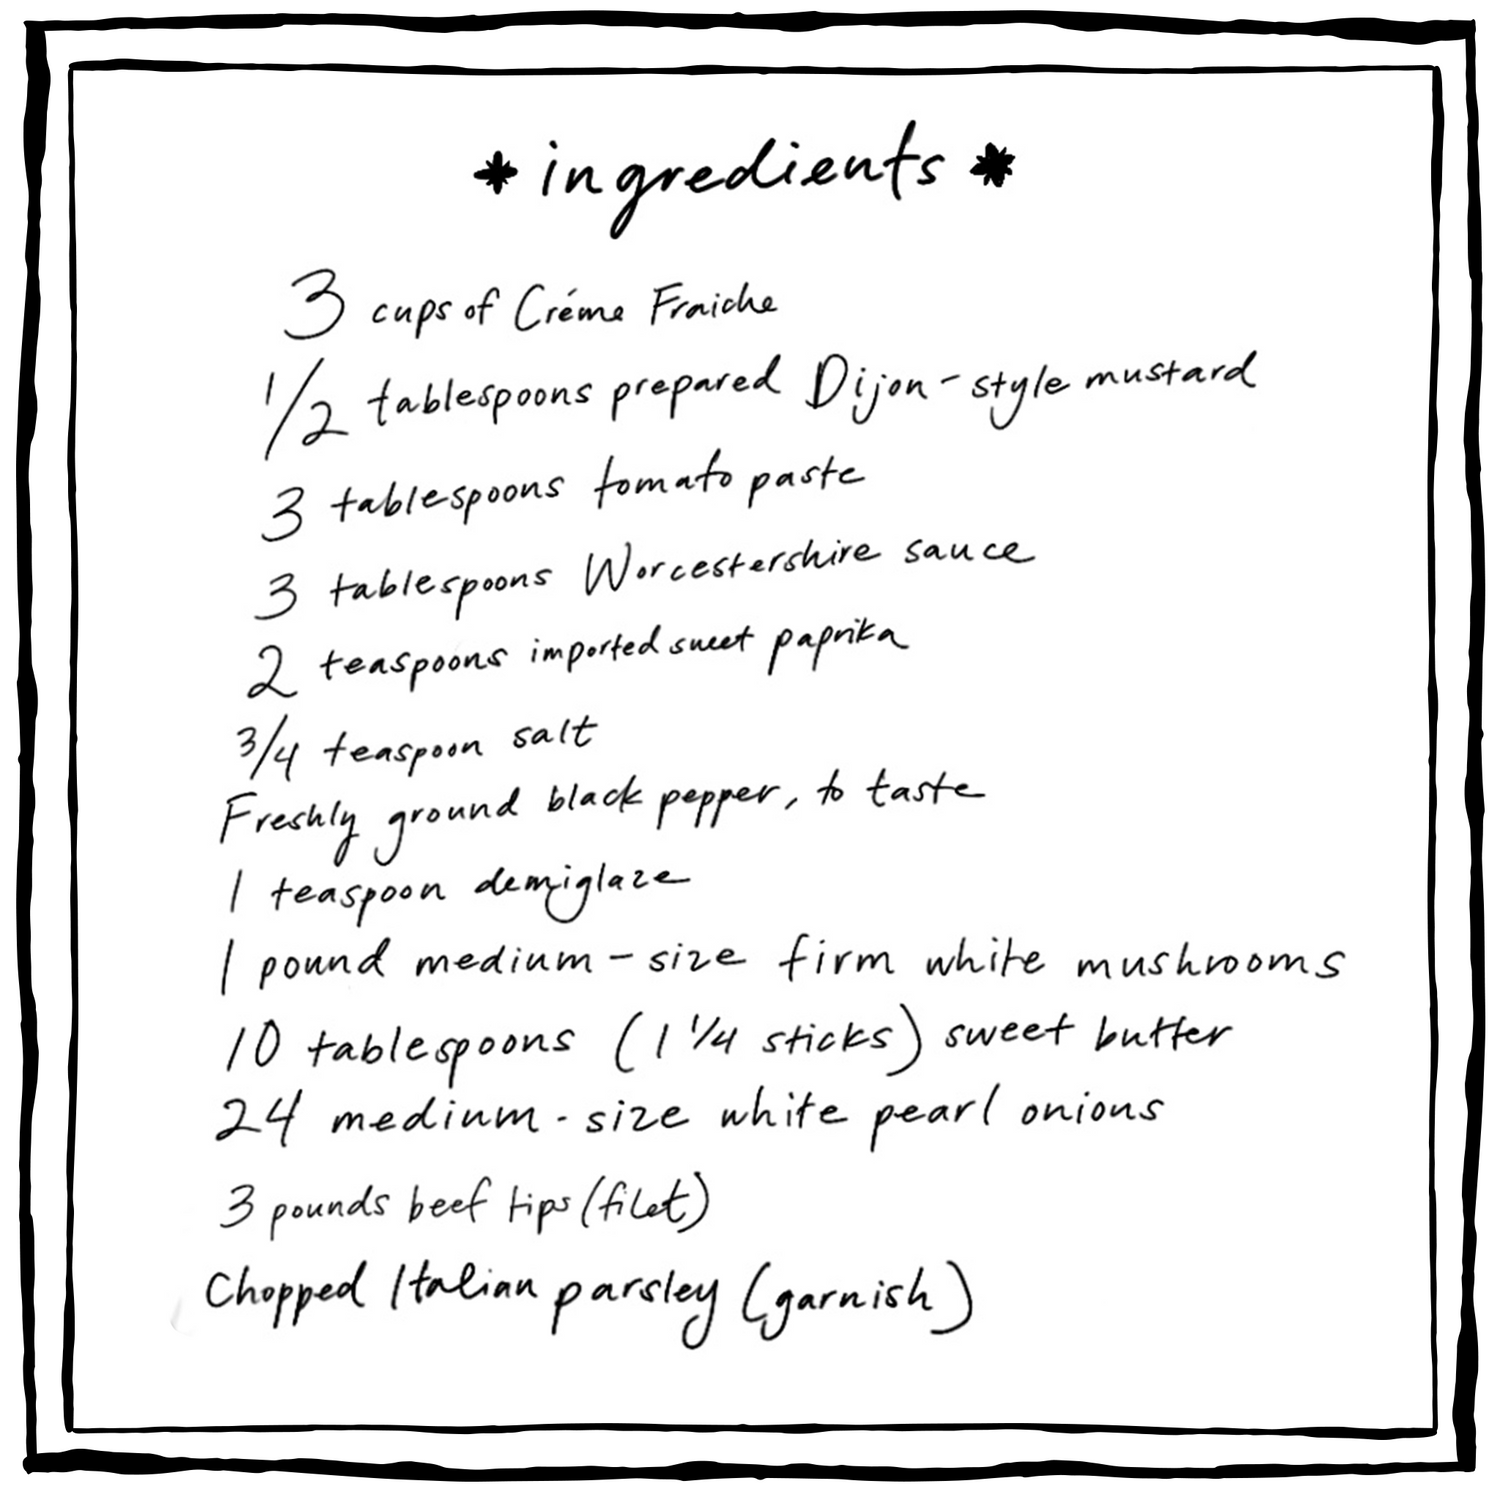 * ingredients *
3 cups of Créme Fraiche
1/2 tablespoons prepared Dijon-style mustard
3 tablespoons tomato paste
3 tablespoons Worcestershire sauce
2 teaspoons imported sweet paprika
3/4 teaspoon salt
Freshly ground black pepper, to taste
1 teaspoon demiglaze
1 pound medium-size firm white mushrooms
10 tablespoons (1 1/4 sticks) sweet butter
24 medium-size white pearl onions
3 pounds beef tips (filet)
Chopped Italian parsley (garnish)